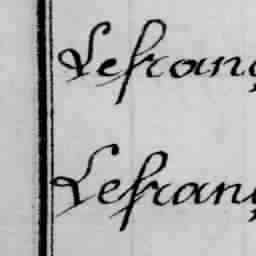 Lefranç
Lefranç